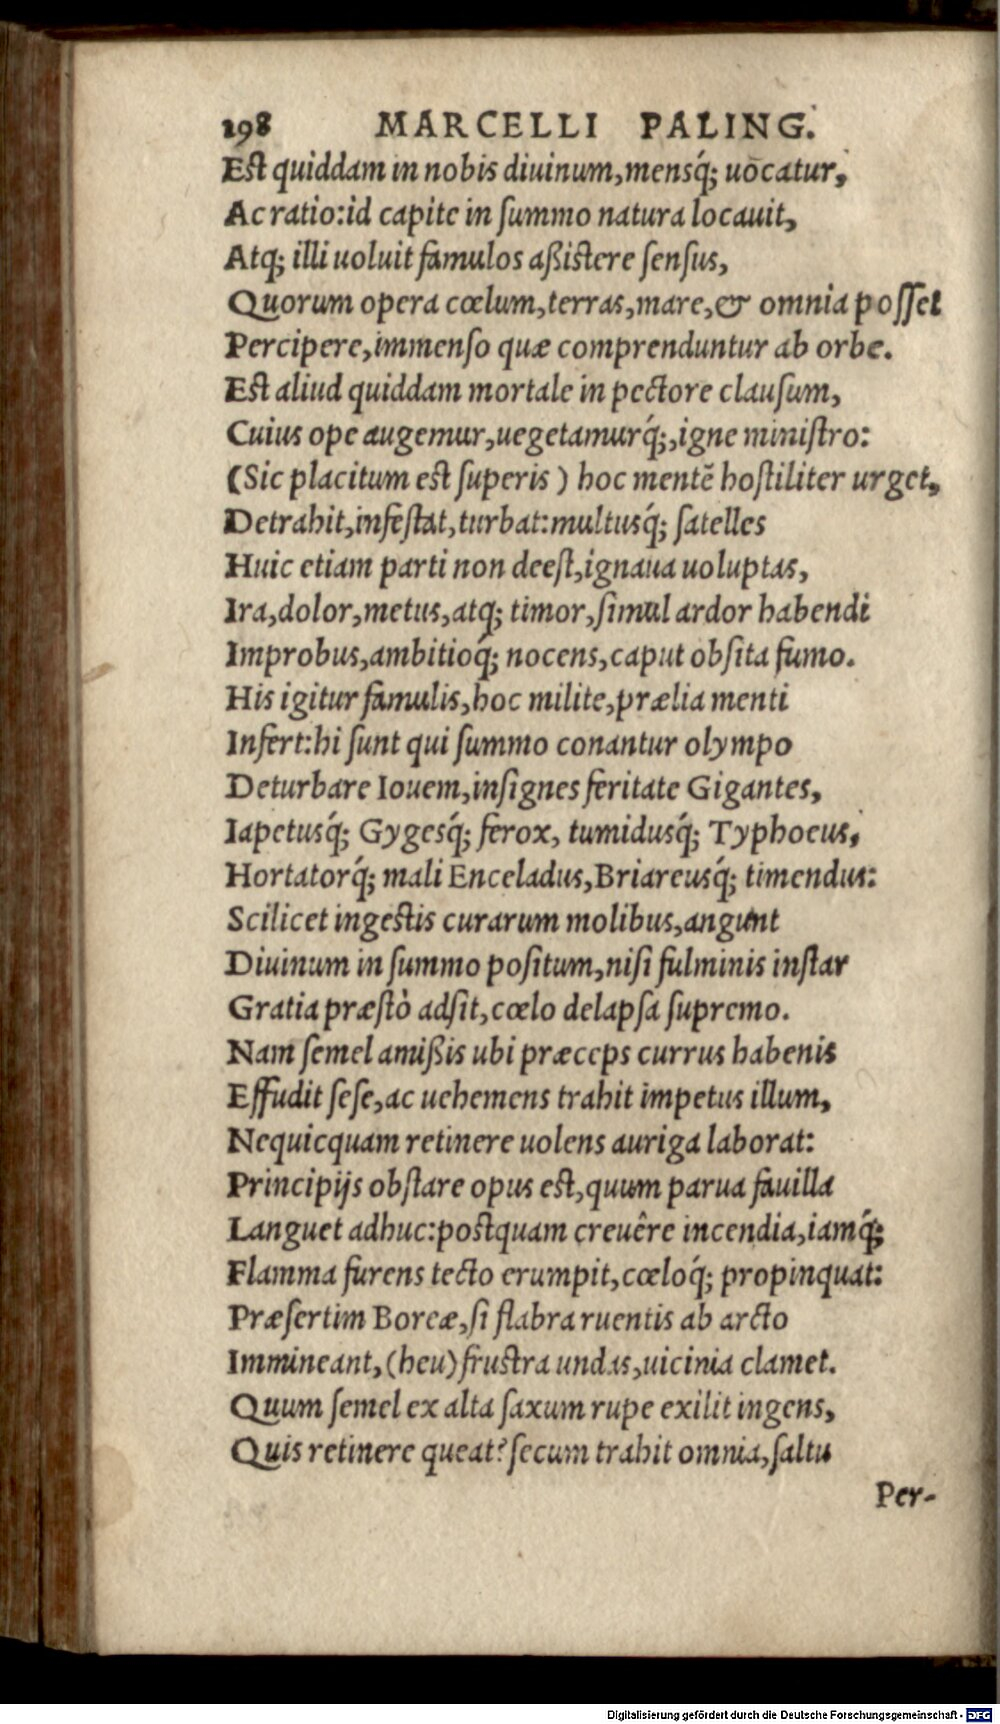 198 MARCELLI PALING.
Eſt quiddam in nobis diuinum, mensq́; uocatur,
Ac ratio: id capite in ſummo natura locauit,
Atq; illi uoluit famulos aßiſtere ſenſus,
Quorum opera cœlum, terras, mare, & omnia poſſet
Percipere, immenſo quæ comprenduntur ab orbe.
Eſt aliud quiddam mortale in pectore clauſum,
Cuius ope augemur, uegetamurq́;, igne miniſtro:
(Sic placitum eſt ſuperis) hoc mentẽ hoſtiliter urget,
Detrahit, infeſtat, turbat: multusq́; ſatelles
Huic etiam parti non deeſt, ignaua uoluptas,
Ira, dolor, metus, atq; timor, ſimul ardor habendi
Improbus, ambitioq́; nocens, caput obſita fumo.
His igitur famulis, hoc milite, prælia menti
Infert: hi ſunt qui ſummo conantur olympo
Deturbare Iouem, inſignes feritate Gigantes,
Iapetusq́; Gygesq́; ferox, tumidusq́; Typhoeus,
Hortatorq́; mali Enceladus, Briareusq́; timendus:
Scilicet ingeſtis curarum molibus, angunt
Diuinum in ſummo poſitum, niſi fulminis inſtar
Gratia præſtò adſit, cœlo delapſa ſupremo.
Nam ſemel amißis ubi præceps currus habenis
Effudit ſeſe, ac uehemens trahit impetus illum,
Nequicquam retinere uolens auriga laborat:
Principijs obſtare opus eſt, quum parua fauilla
Languet adhuc: poſtquam creuêre incendia, iamq́;
Flamma furens tecto erumpit, cœloq́; propinquat:
Præſertim Boreæ, ſi flabra ruentis ab arcto
Immineant, (heu) fruſtra undas, uicinia clamet.
Quum ſemel ex alta ſaxum rupe exilit ingens,
Quis retinere queat? ſecum trahit omnia, ſaltu
Per-
Digitalisierung gefördert durch die Deutsche Forschungsgemeinschaft - DFG